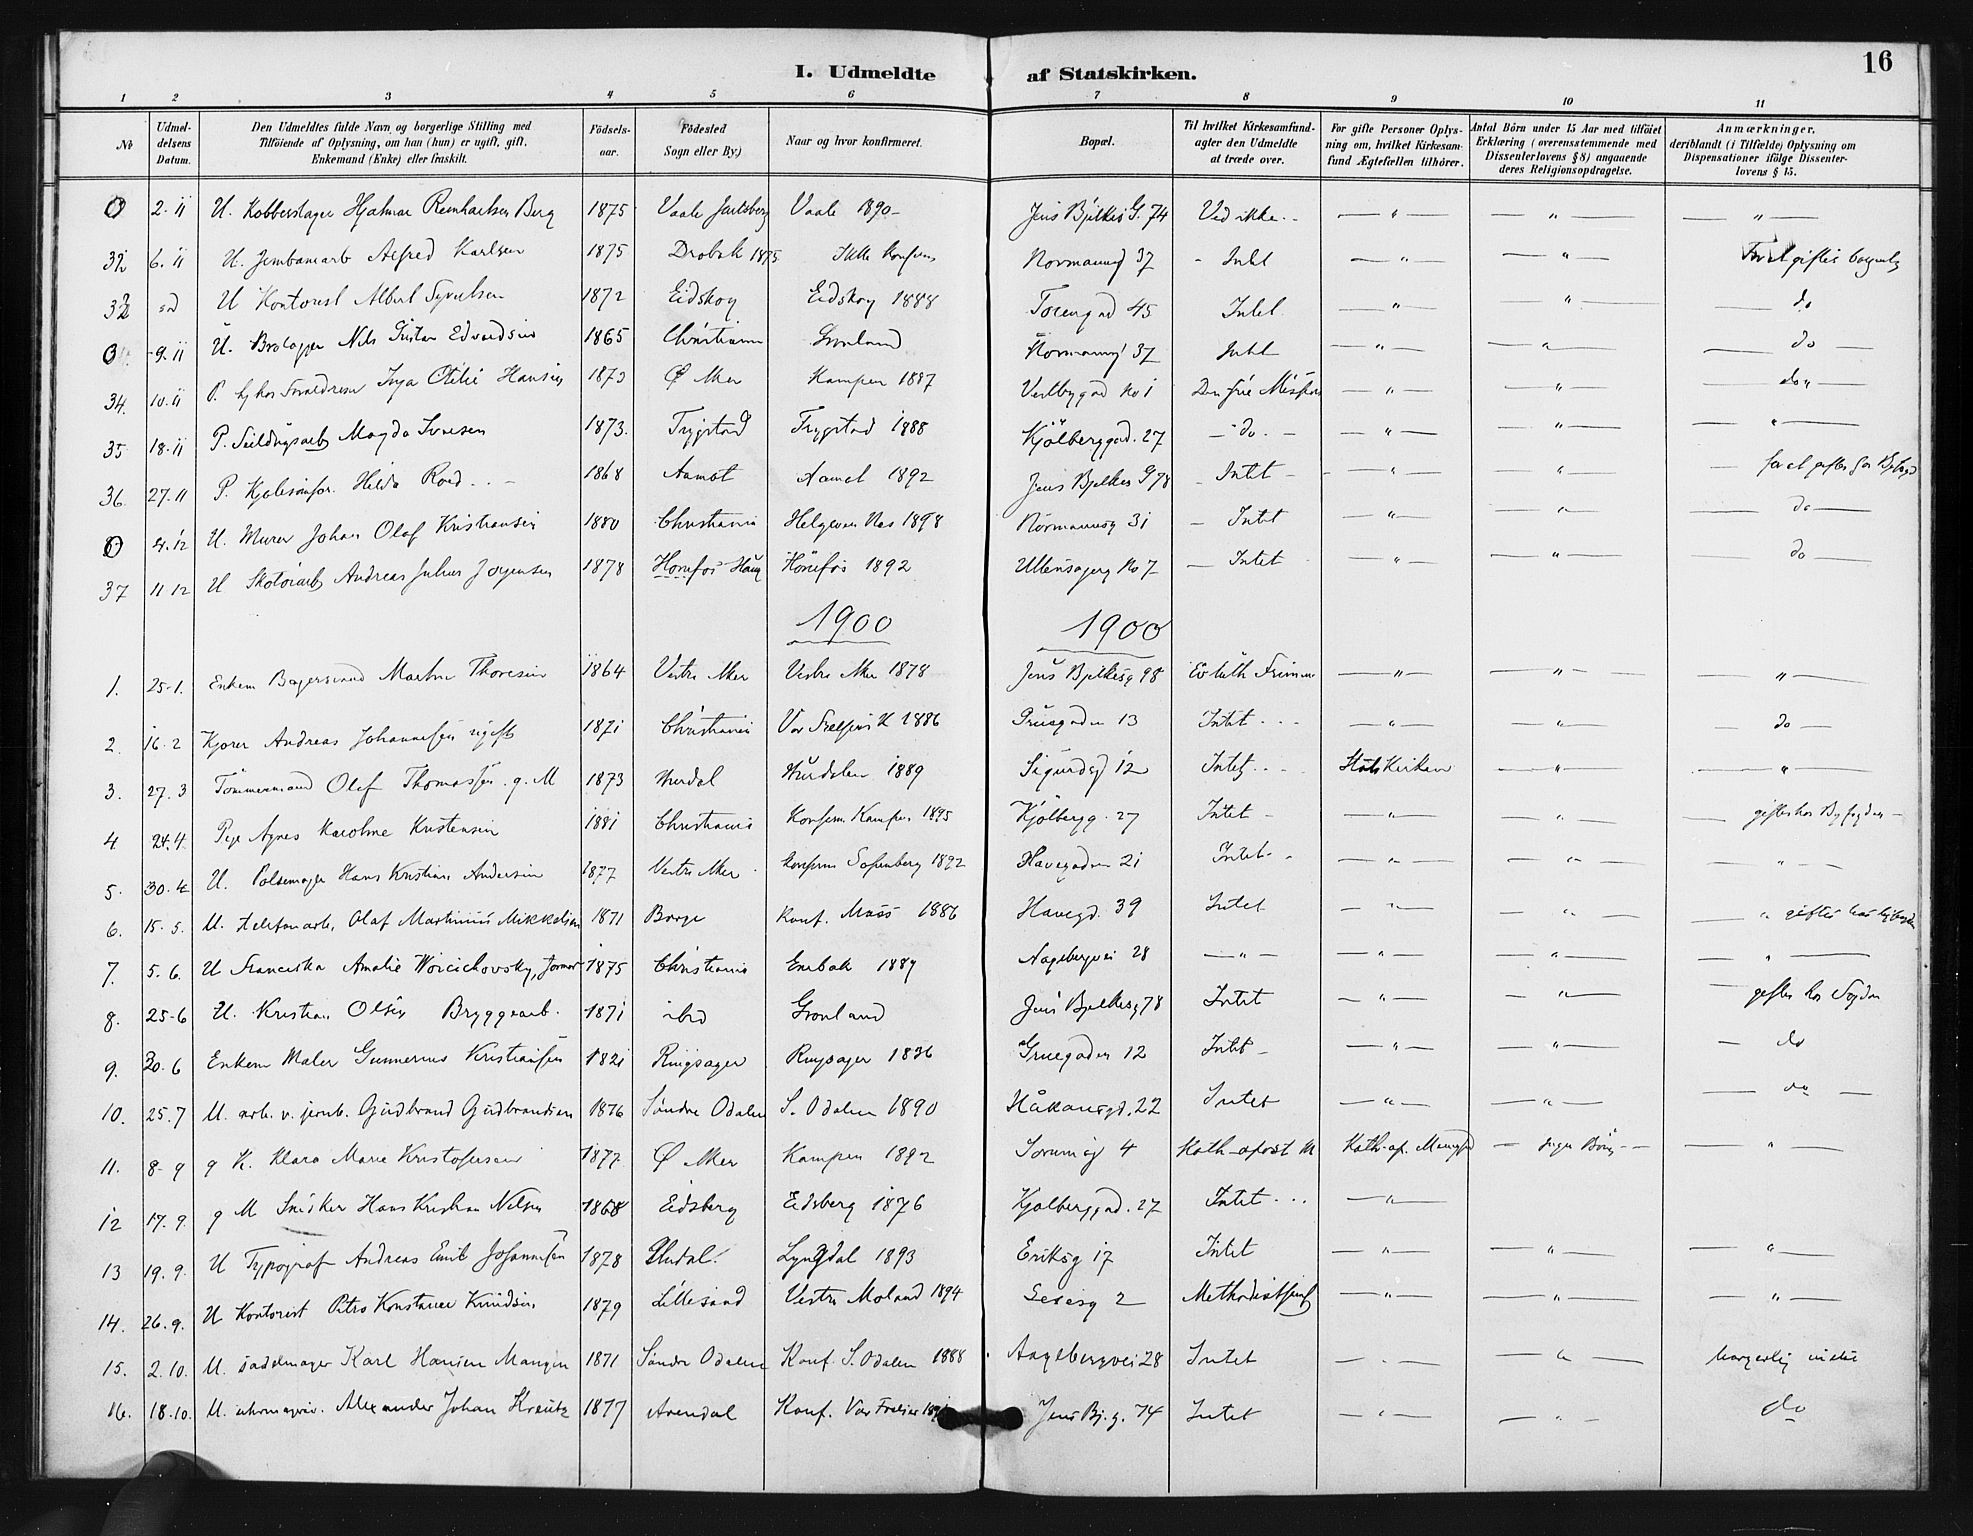 16
I. Udmeldte af Statskirken.
1 2 3 4 5 6 7 8 9 10 11
No
Udmeldelsens Datum.
Den Udmeldtes fulde Navn og borgerlige Stilling med Tilföiende af Oplysning, om han (hun) er ugift, gift, Enkemand (Enke) eller fraskilt.
Födselsaar.
Födested Sogn eller By.)
Naar og hvor konfirmeret.
Bopæl.
Til hvilket Kirkesamfund agter den Udmeldte at træde over.
For gifte Personer Oplysning om, hvilket Kirkesamfund Ægtefællen tilhörer.
Antal Börn under 15 Aar med tilföiet Erklæring (overensstemmende med Dissenterlovens § 8) angaaende deres Religionsopdragelse.
Anmærkninger, deriblandt (i Tilfælde) Oplysning om Dispensationer ifölge Dissenterlovens § 15.
0 2. 11 U. Kobberslager Hjalmar Reinhardsen Berg 1875 Vaale Jarlsberg Vaale 1890 Jens Bjelkes G. 74 Ved ikke — " — — " — — " —
32 6. 11 U. Jernbanearb Alfred Karlsen 1875 Drøbak 1875 Ikke Konfirm Normannsg 37 Intet — " — — " — For at giftes borgerlig
33 sd U Kontorist Albert Syvertsen 1872 Eidskog Eidskog 1888 Torengad 45 Intet — " — — " — do
0 9. 11 U. Brolægger Nils Gustav Edvardsen 1865 Christiania Grønland Normannsg 37 Intet — " — — " — do
34. 10. 11 P. Inga Otilie Hansen 1873 Ø Aker Kampen 1887 Vestbygad No 1 Den frie Mission — " — — " — do
35 18. 11 P. Magda Iversen 1873. Trygstad Trygstad 1888 Kjölberggad. 27 — do. — — " — — " — — " —
36 27. 11 P. Kjolesömfor. Hilda Roed 1868 Aamot Aamot 1892 Jens Bjelkes G 78 Intet — " — — " — for at giftes hos Byfogd
0 4. 12 U. Murer Johan Olaf Kristiansen 1880 Christiania Helgesen Nas 1898 Normannsg 31 Intet — " — — " — do
37 11 12 U Skotöiarb Andreas Julius Jørgensen 1878 Hønefos Haug Hönefos 1892 Ullensagerg No 7 Intet — " — — " — do
1900 1900
1. 25-1. Enkem Martin Thoresen 1864 Vestre Aker Vestre Aker 1878 Jens Bjelkesg 98 Ev luth Frimen — " — — " — — " —
2. 16. 2 Kjører Andreas Johannesen ugift 1871 Christiania Vor Frelsers K 1886 Grüsgaden 13 Intet — " — — " — do
3. 27. 3 Tömmermand Olaf Thomassen. g. M 1873 Hurdal Hurdalen 1889 Sigurdsg 12 Intet Stats Kirken — " — — " —
4 24. 4. Pige Agnes Karoline Kristensen 1881 Christiania Konfirm Kampen 1895 Kjölbergg. 27 Intet — " — — " — giftes hos Byfogden
5. 30. 4 U. Pølsemager Hans Kristian Andersen 1877 Vestre Aker Konfirm Sofienberg 1892 Havegaden 21 Intet — " — — " — — " —
6. 15. 5. U. telefonarb. Olaf Martinius Mikkelsen 1871 Borge Konf. Moss 1886 Havegd. 39 Intet — " — — " — " giftes hos byfogden
7. 5. 6. U Franciska Amalie Woicichovsky, Jomfr 1875 Christiania Enebak 1889 Aagebergvei 28 — " — — " — — " — — " —
8. 25-6 U. Kristian Olsen Bryggearb. 1871 ibid Grønland Jens Bjelkesg 78 Intet — " — — " — giftes hos Fogden
9. 30. 6 Enkem Maler Gunnerius Kristiansen 1821 Ringsager Ringsager 1836 Gruegaden 12 Intet — " — — " — do
10. 25. 7 U. arb. v. jernb. Gudbrand Gudbrandsen 1876 Søndre Odalen S. Odalen 1890 Håkonsgd. 22 Intet — " — — " — do
11. 8- 9 g K. Klara Marie Kristofersen 1877 Ø Aker Kampen 1892 Sorumsg 4 Kath-apost M Kath-ap. Menighed ingen Börn — " —
12 17. 9. g M Snedker Hans Kristian Nilsen 1868 Eidsberg Eidsberg 1876 Kjølberggad. 27 Intet — " —
13 19. 9. U Typograf Andreas Emil Johannesen 1878 Lyngdal 1893 Eriksg 17 Intet — " — — " — — " —
14. 26. 9. U Kontorist Petra Konstance Knudsen 1879 Lillesand Vestre Moland 1894 2 Methodistsamf — " — — " — — " —
15. 2. 10. U. sadelmager Karl Hansen Mangen 1871 Søndre Odalen Konf. S. Odalen 1888 Aagebergvei 28 Intet — " — — " — borgerlig vielse
16. 18. 10. U. Alexander Johan Kreutz 1877 Arendal Konf. Vor Frelser Jens Bj. g. 74 Intet — " — — " — do